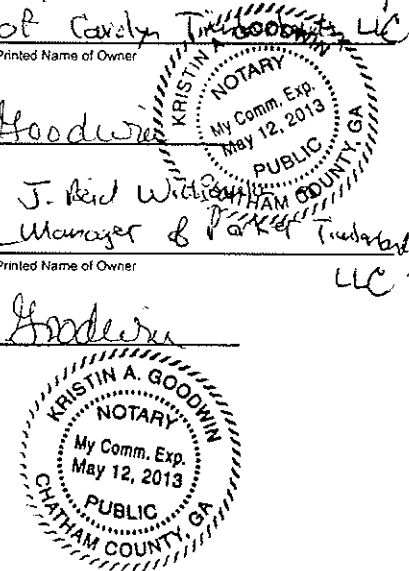 of Carolyn Timberlands LLC
Printed Name of Owner
Goodwin
KRISTIN A. GOODWIN
NOTARY
My Comm. Exp.
May 12, 2013
PUBLIC
CHATHAM COUNTY, GA
J. Reid Williams
Manager of Parker Timberlands
LLC
Printed Name of Owner
Goodwin
KRISTIN A. GOODWIN
NOTARY
My Comm. Exp.
May 12, 2013
PUBLIC
CHATHAM COUNTY, GA